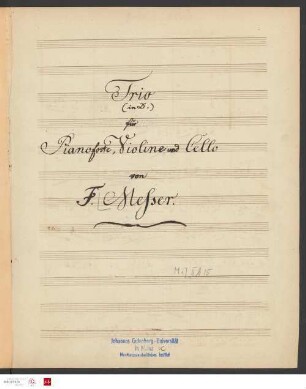 Trio
(in D.)
für
Pianoforte, Violine und Cello
von
F. Messer.
Johannes Gutenberg-Universität
Institut